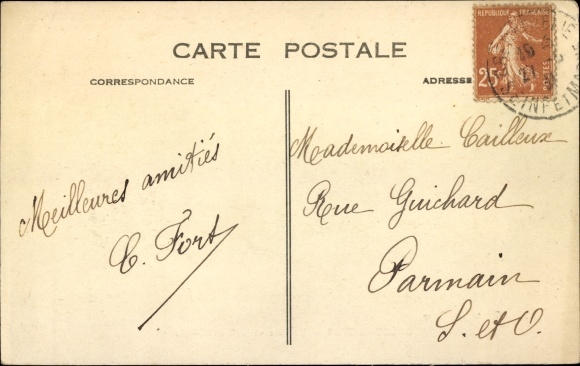 CARTE POSTALE
CORRESPONDANCE
ADRESSE
REPUBLIQUE FRANÇAISE
25
POSTES
Meilleures amitiés
E. Fort
Mademoiselle Cailleux
Rue Guichard
Parmain
S. et O.